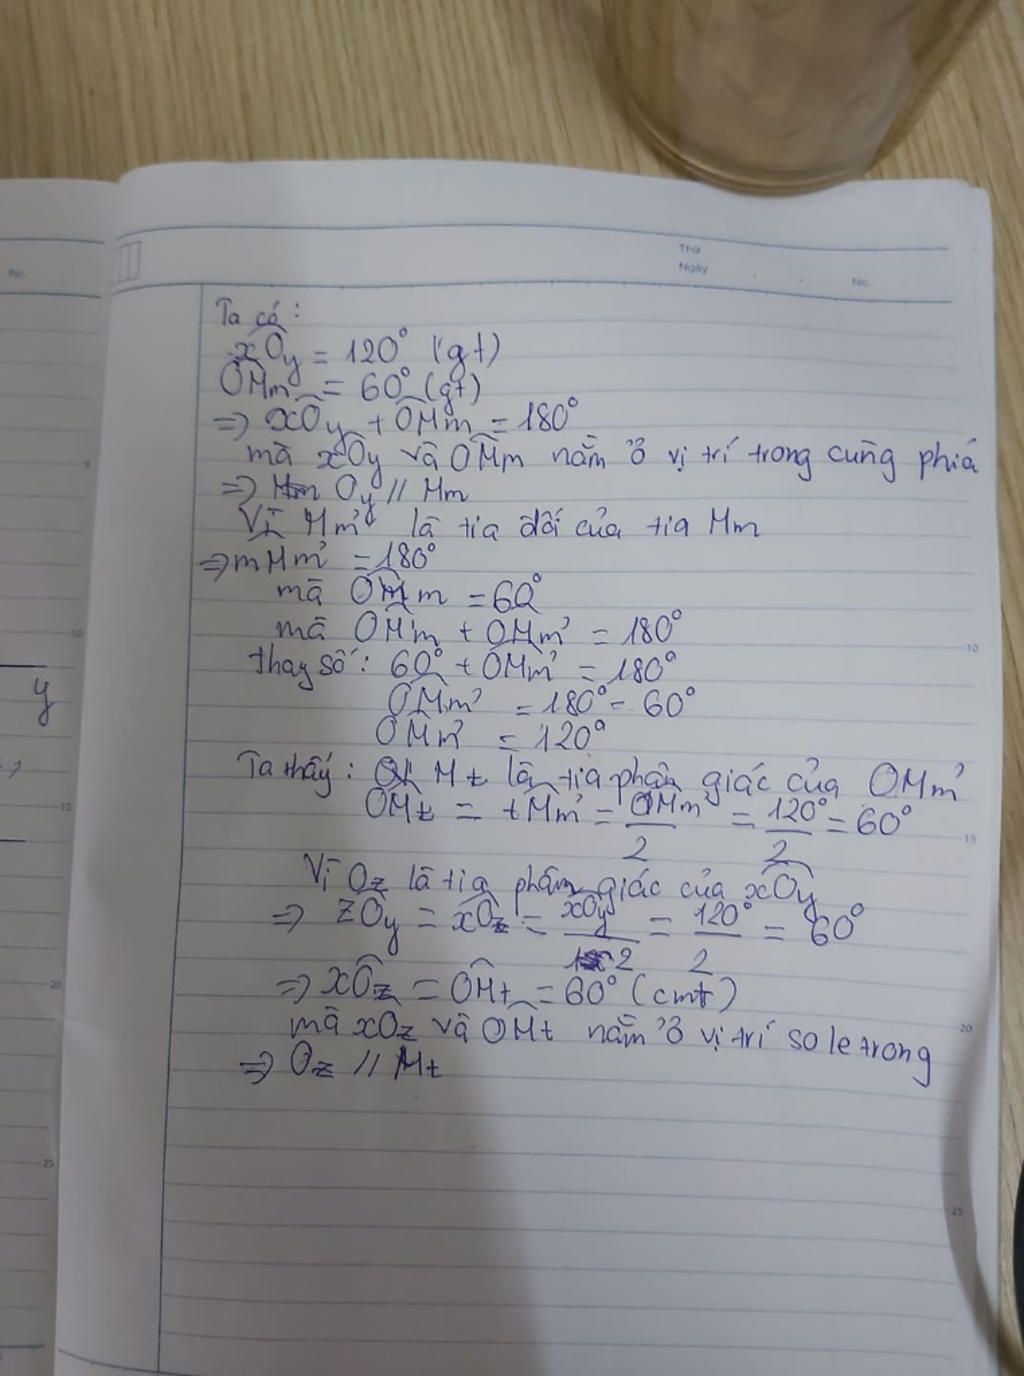 Thứ
Ngày
No.
No.
Ta có:
xOy = 120° (gt)
OMm = 60° (gt)
=> xOy + OMm = 180°
mà xOy và OMm nằm ở vị trí trong cùng phía
=> Oy // Mm
Vì Mm' là tia đối của tia Mm
=> mMm' = 180°
mà OMm = 60°
mà OMm + OMm' = 180°
thay số: 60° + OMm' = 180°
OMm' = 180° - 60°
OMm' = 120°
Ta thấy: Mt là tia phân giác của OMm'
OMt = tMm' = OMm'/2 = 120°/2 = 60°
Vì Oz là tia phâm giác của xOy
=> zOy = xOz = xOy/2 = 120°/2 = 60°
=> xOz = OMt = 60° (cmt)
mà xOz và OMt nằm ở vị trí so le trong
=> Oz // Mt
y
5
10
15
20
25
10
15
20
25